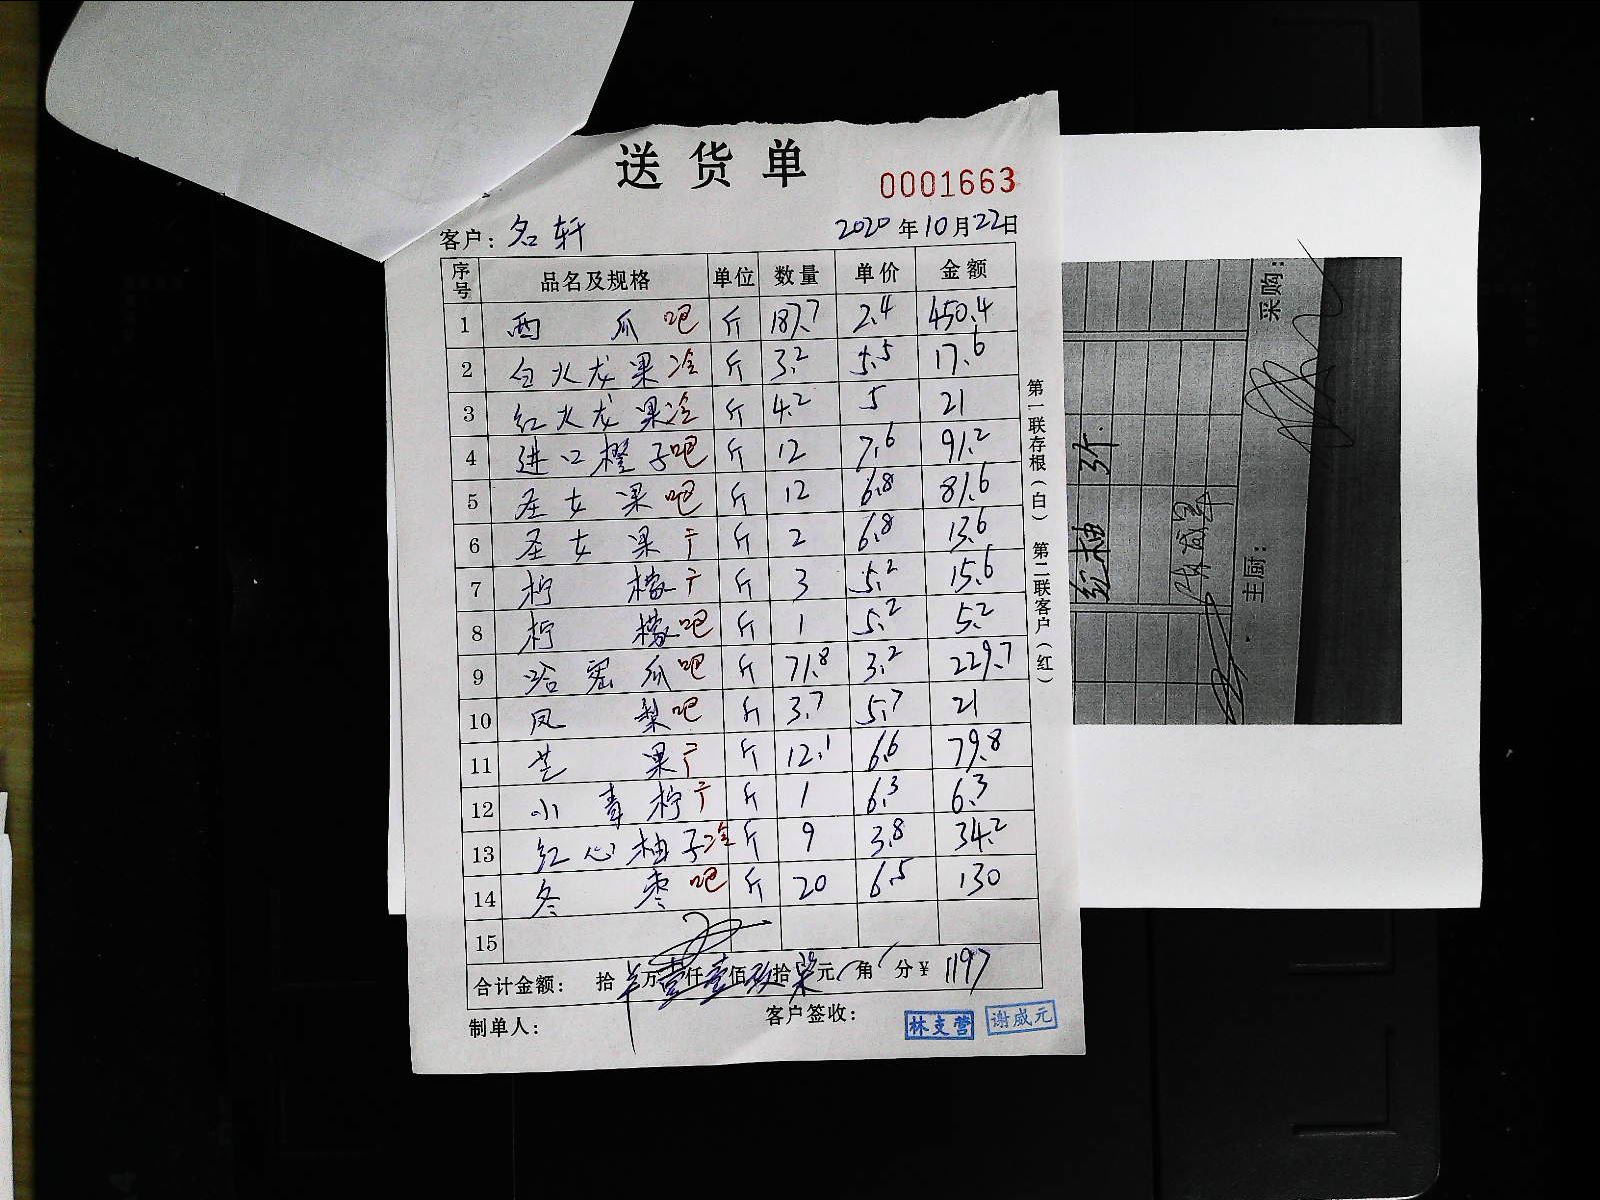 送货单
0001663
客户：名轩 2020年10月22日
序号 品名及规格 单位 数量 单价 金额
1 西瓜 吧 斤 187.7 2.4 450.4
2 白火龙果 冷 斤 3.2 5.5 17.6
3 红火龙果 冷 斤 4.2 5 21
4 进口橙子 吧 斤 12 7.6 91.2
5 圣女果 吧 斤 12 6.8 81.6
6 圣女果 斤 2 6.8 13.6
7 柠檬 斤 3 5.2 15.6
8 柠檬 吧 斤 1 5.2 5.2
9 哈密瓜 吧 斤 71.8 3.2 229.7
10 凤梨 吧 斤 3.7 5.7 21
11 芒果 斤 12.1 6.6 79.8
12 小青柠 斤 1 6.3 6.3
13 红心柚子 冷 斤 9 3.8 34.2
14 冬枣 吧 斤 20 6.5 130
15
合计金额： 拾 万壹仟壹佰玖拾柒元 角 分¥ 1197
制单人： 客户签收： 林支营 谢威元
第一联存根（白） 第二联客户（红）
采购：
红柚 3斤
主厨：